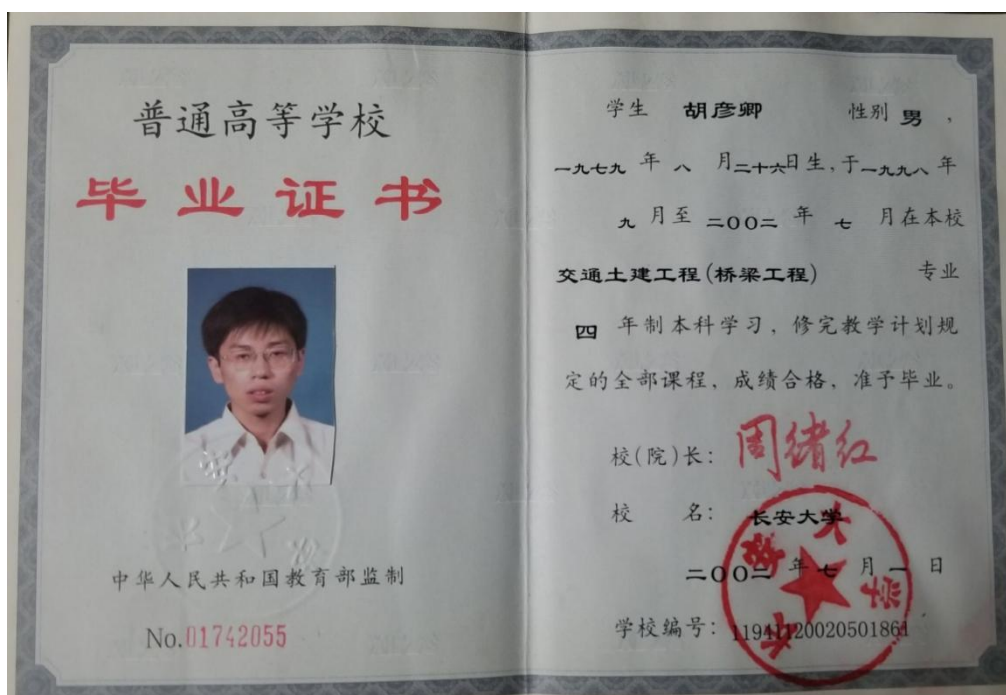 普通高等学校
毕业证书
中华人民共和国教育部监制
No.01742055
学生 胡彦卿 性别 男，
一九七九 年 八 月二十六日生，于一九九八 年
九 月至 二00二 年 七 月在本校
交通土建工程(桥梁工程) 专业
四 年制本科学习，修完教学计划规
定的全部课程，成绩合格，准予毕业。
校(院)长： 周绪红
校 名： 长安大学
二00二 年 七 月 一 日
学校编号：11941120020501861